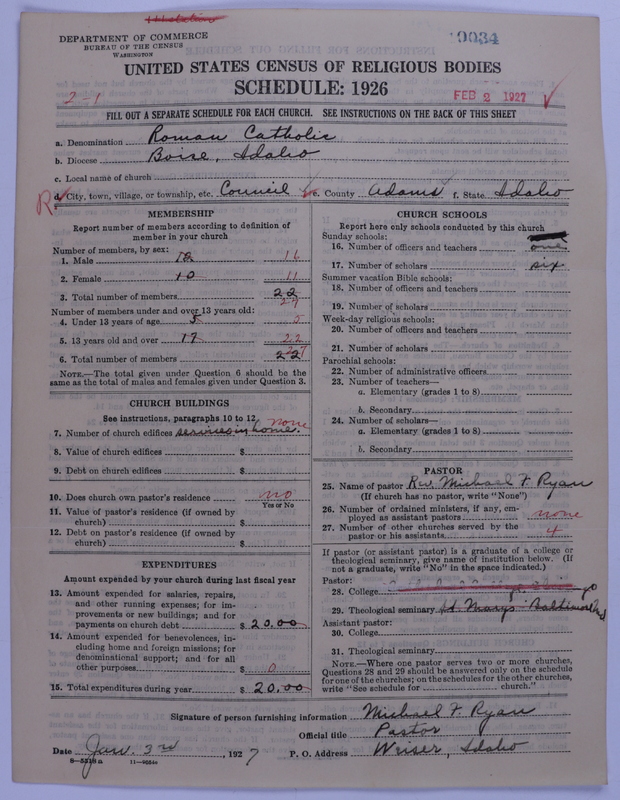 DEPARTMENT OF COMMERCE
BUREAU OF THE CENSUS
WASHINGTON
9034
UNITED STATES CENSUS OF RELIGIOUS BODIES
SCHEDULE: 1926
2-1
FEB 2 1927
FILL OUT A SEPARATE SCHEDULE FOR EACH CHURCH. SEE INSTRUCTIONS ON THE BACK OF THIS SHEET
a. Denomination Roman Catholic
b. Diocese Boise, Idaho
c. Local name of church
R d. City, town, village, or township, etc. Council e. County Adams f. State Idaho
MEMBERSHIP
Report number of members according to definition of
member in your church
Number of members, by sex:
1. Male 12 16
2. Female 10 11
3. Total number of members 22
27
Number of members under and over 13 years old:
4. Under 13 years of age 5 5
5. 13 years old and over 17 22
6. Total number of members 22 27
NOTE.—The total given under Question 6 should be the
same as the total of males and females given under Question 3.
CHURCH BUILDINGS
See instructions, paragraphs 10 to 12 none
7. Number of church edifices services in home.
8. Value of church edifices $
9. Debt on church edifices $
10. Does church own pastor's residence no
Yes or No
11. Value of pastor's residence (if owned by
church) $
12. Debt on pastor's residence (if owned by
church) $
EXPENDITURES
Amount expended by your church during last fiscal year
13. Amount expended for salaries, repairs,
and other running expenses; for im-
provements or new buildings; and for
payments on church debt $ 20.00
14. Amount expended for benevolences, in-
cluding home and foreign missions; for
denominational support; and for all
other purposes $ 0
15. Total expenditures during year $ 20.00
CHURCH SCHOOLS
Report here only schools conducted by this church
Sunday schools:
16. Number of officers and teachers one
17. Number of scholars six
Summer vacation Bible schools:
18. Number of officers and teachers
19. Number of scholars
Week-day religious schools:
20. Number of officers and teachers
21. Number of scholars
Parochial schools:
22. Number of administrative officers
23. Number of teachers—
a. Elementary (grades 1 to 8)
b. Secondary
24. Number of scholars—
a. Elementary (grades 1 to 8)
b. Secondary
PASTOR
25. Name of pastor Rev. Michael F. Ryan
(If church has no pastor, write "None")
26. Number of ordained ministers, if any, em-
ployed as assistant pastors none
27. Number of other churches served by the
pastor or his assistants 4
If pastor (or assistant pastor) is a graduate of a college or
theological seminary, give name of institution below. (If
not a graduate, write "No" in the space indicated.)
Pastor:
28. College
29. Theological seminary St. Marys Baltimore Md
Assistant pastor:
30. College
31. Theological seminary
NOTE.—Where one pastor serves two or more churches,
Questions 28 and 29 should be answered only on the schedule
for one of the churches; on the schedules for the other churches,
write "See schedule for church."
Signature of person furnishing information Michael F. Ryan
Official title Pastor
Date Jan. 3rd, 1927 P. O. Address Weiser, Idaho